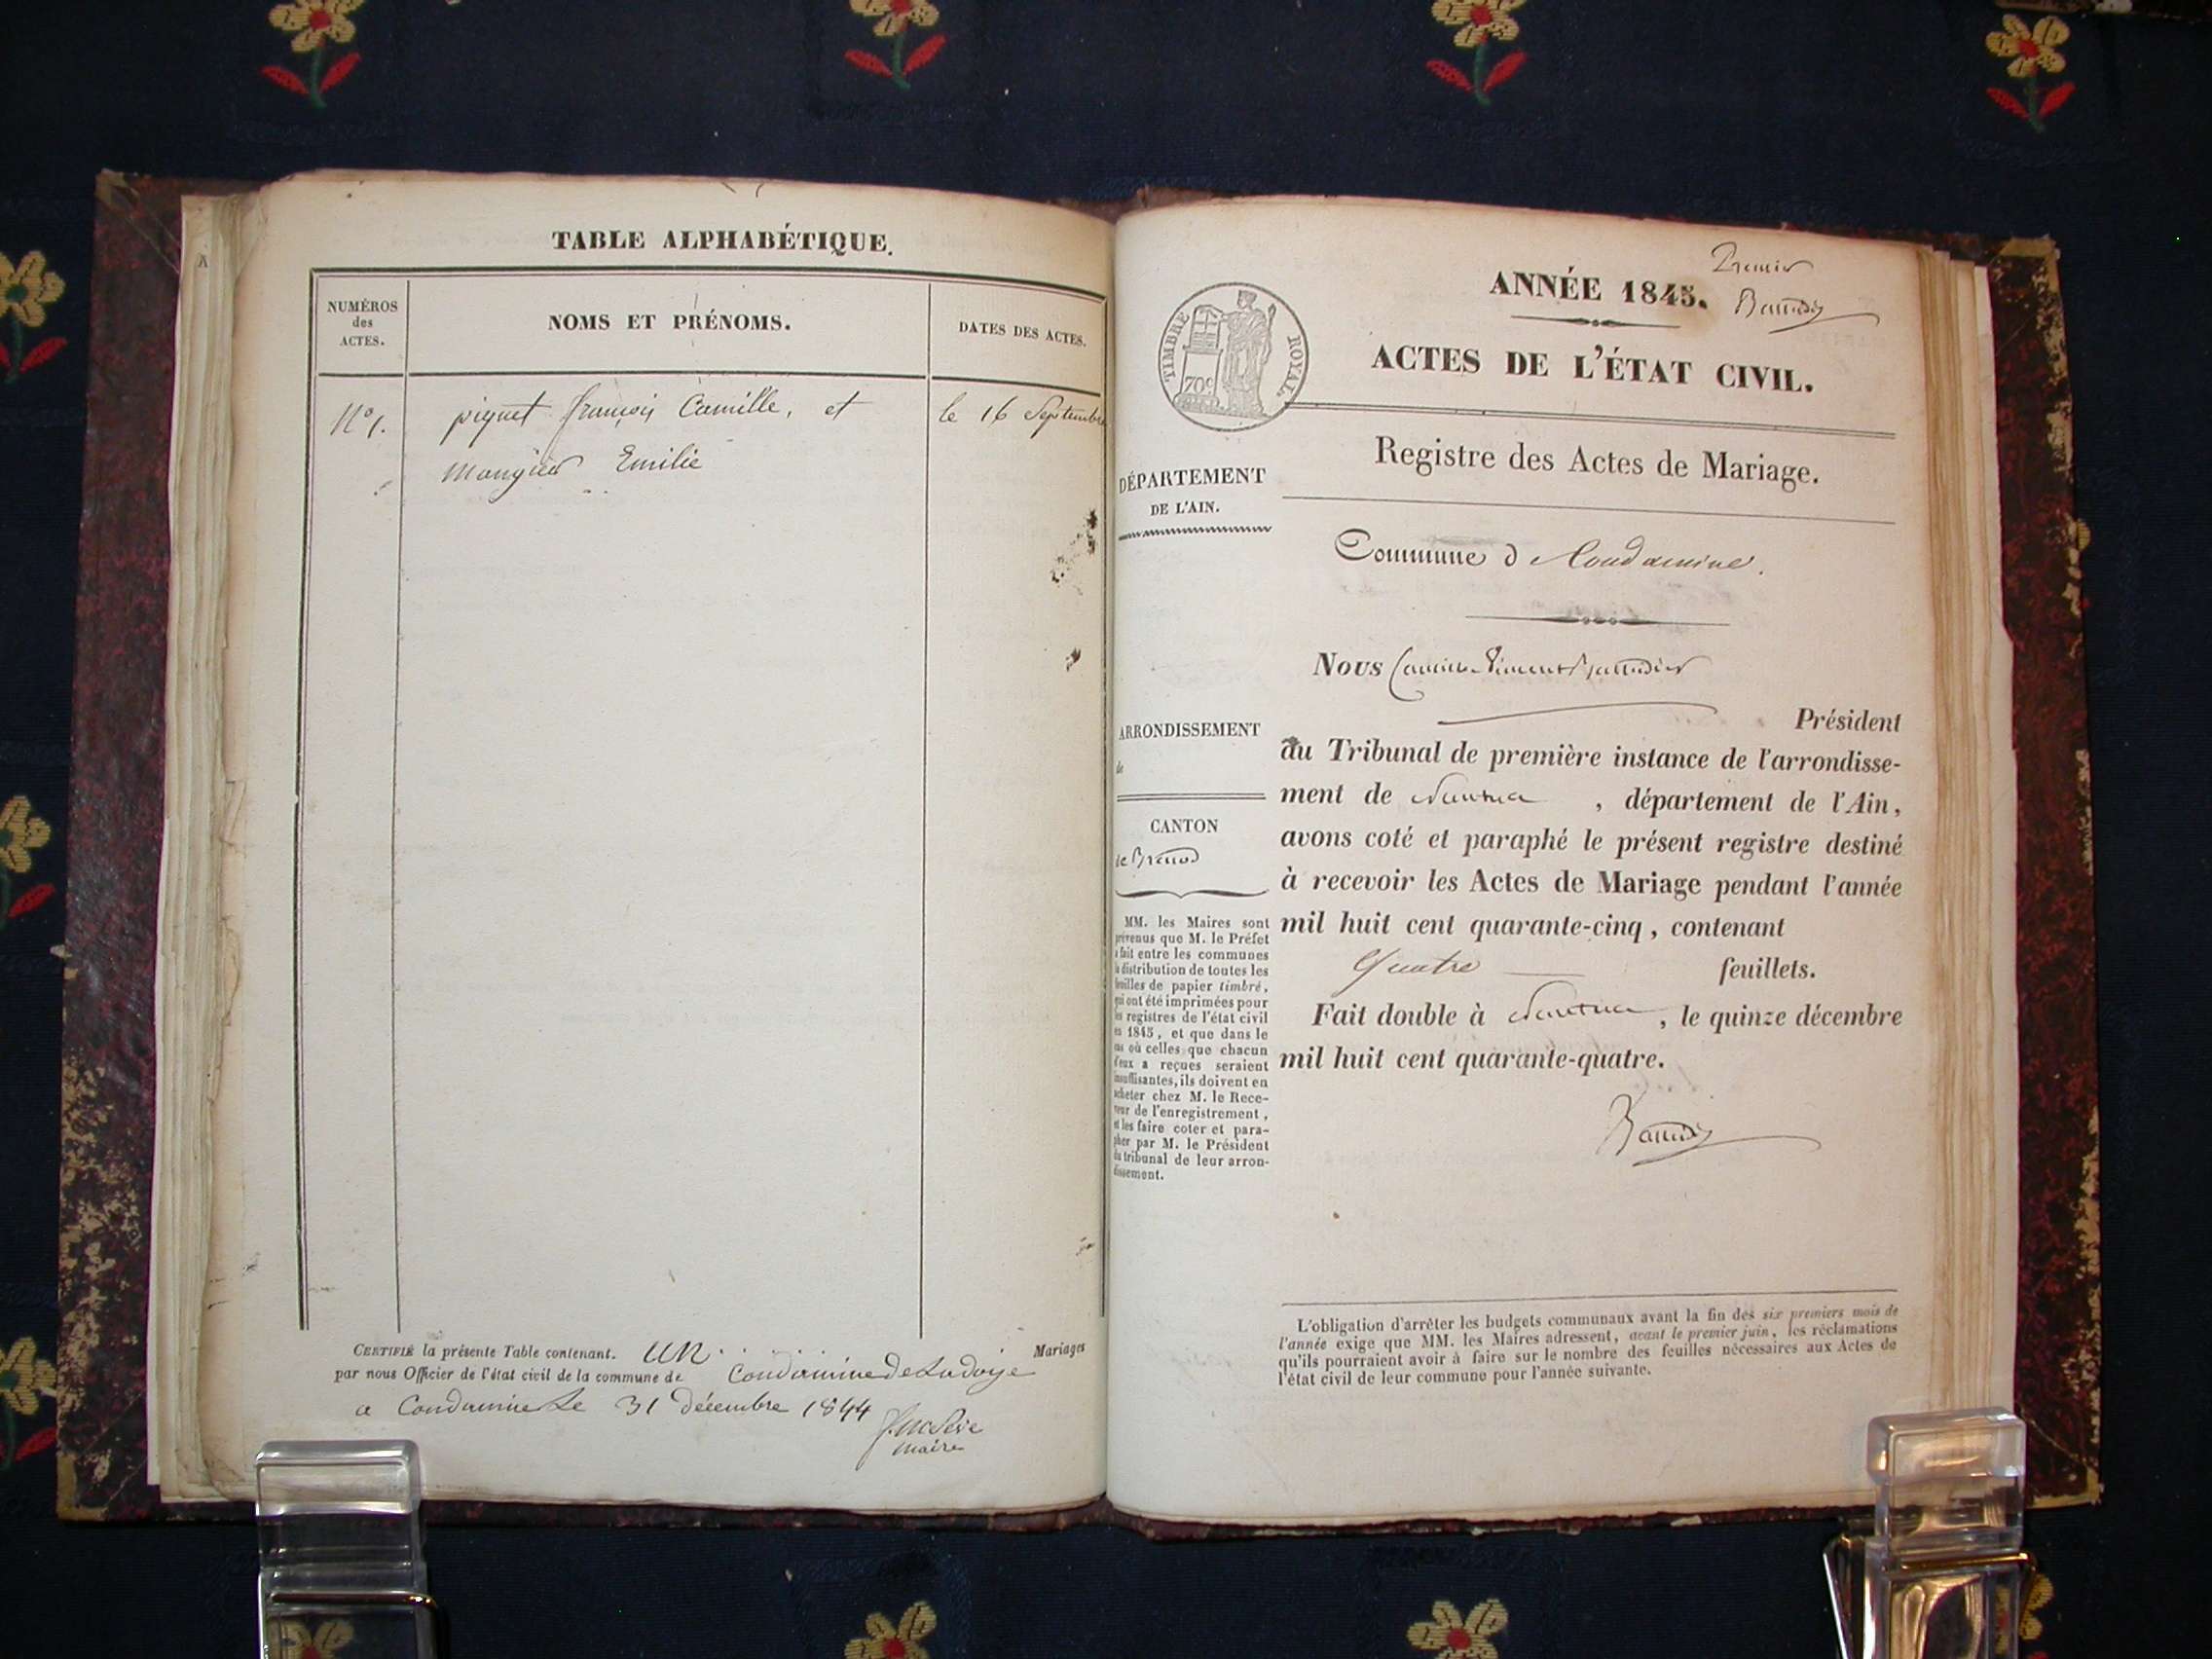 TABLE ALPHABÉTIQUE.
NUMÉROS
des
ACTES.
NOMS ET PRÉNOMS.
DATES DES ACTES.
N° 1.
piquet françois Camille, et
le 16 Septembre
Emilie
CERTIFIÉ la présente Table contenant. un Mariages
par nous Officier de l'état civil de la commune de Condamine De Ladoye
a Condamine Le 31 décembre 1844
maire
Premier
ANNÉE 1845.
TIMBRE ROYAL.
70c
ACTES DE L'ÉTAT CIVIL.
Registre des Actes de Mariage.
DÉPARTEMENT
DE L'AIN.
Commune d Condamine.
Nous
Président
ARRONDISSEMENT
de
CANTON
de Brenod
du Tribunal de première instance de l'arrondisse-
ment de Nantua, département de l'Ain,
avons coté et paraphé le présent registre destiné
à recevoir les Actes de Mariage pendant l'année
mil huit cent quarante-cinq, contenant
Quatre feuillets.
Fait double à Nantua, le quinze décembre
mil huit cent quarante-quatre.
MM. les Maires sont
prévenus que M. le Préfet
a fait entre les communes
la distribution de toutes les
feuilles de papier timbré,
qui ont été imprimées pour
les registres de l'état civil
en 1845, et que dans le
cas où celles que chacun
d'eux a reçues seraient
insuffisantes, ils doivent en
acheter chez M. le Rece-
veur de l'enregistrement,
et les faire coter et para-
pher par M. le Président
du tribunal de leur arron-
dissement.
L'obligation d'arrêter les budgets communaux avant la fin des six premiers mois de
l'année exige que MM. les Maires adressent, avant le premier juin, les réclamations
qu'ils pourraient avoir à faire sur le nombre des feuilles nécessaires aux Actes de
l'état civil de leur commune pour l'année suivante.